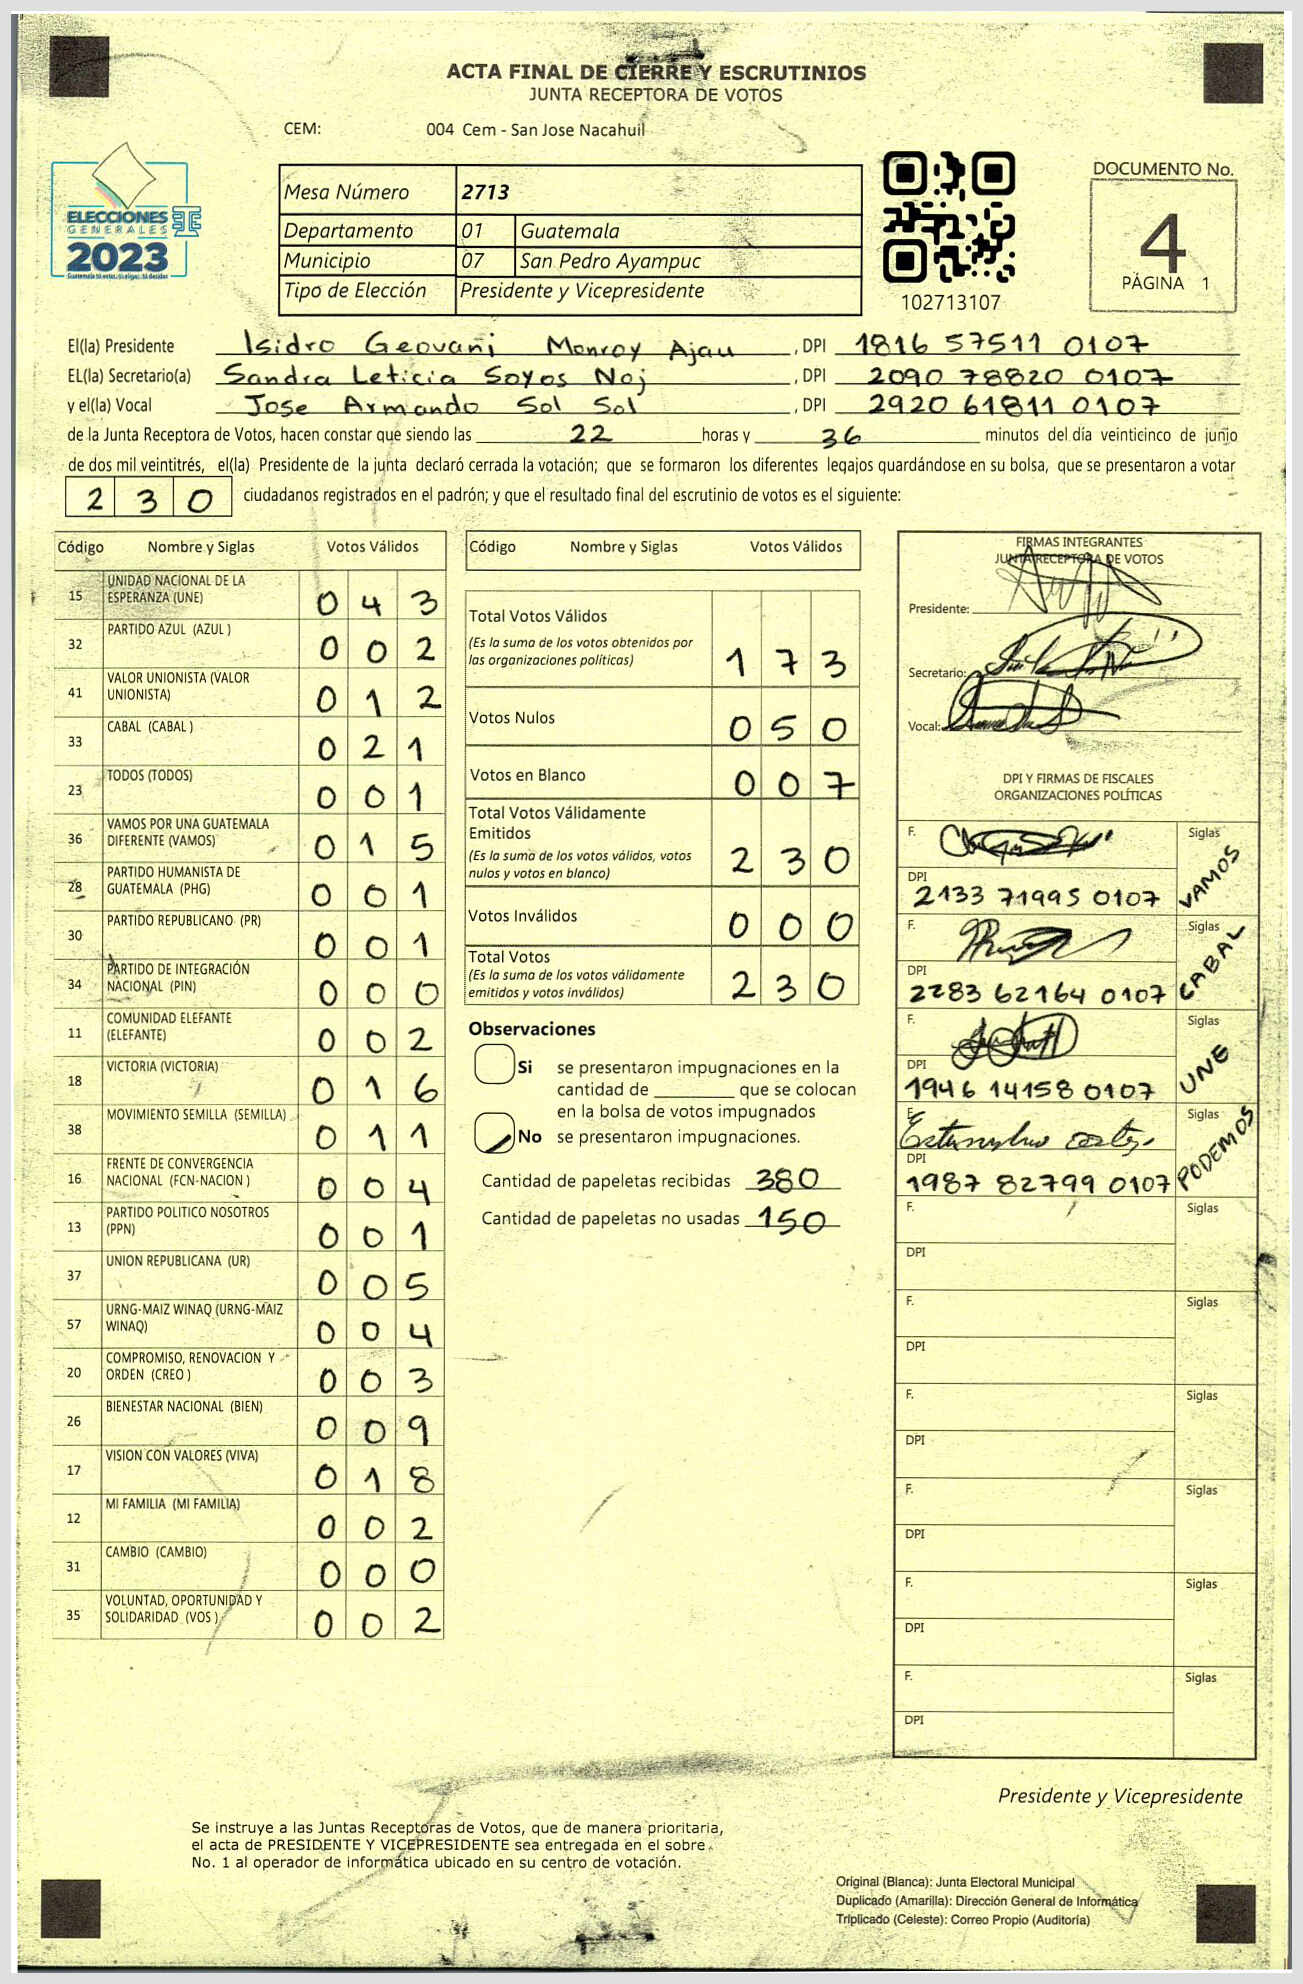 ACTA FINAL DE CIERRE Y ESCRUTINIOS
JUNTA RECEPTORA DE VOTOS
CEM: 004 Cem - San Jose Nacahuil
ELECCIONES
GENERALES
2023
Mesa Número 2713
Departamento 01 Guatemala
Municipio 07 San Pedro Ayampuc
Tipo de Elección Presidente y Vicepresidente
102713107
DOCUMENTO No.
4
PÁGINA 1
El(la) Presidente Isidro Geovani Monroy Ajau , DPI 1816 57511 0107
EL(la) Secretario(a) Sandra Leticia Soyos Noj , DPI 2090 78820 0107
y el(la) Vocal Jose Armando Sol Sol , DPI 2920 61811 0107
de la Junta Receptora de Votos, hacen constar que siendo las 22 horas y 36 minutos del día veinticinco de junio
de dos mil veintitrés, el(la) Presidente de la junta declaró cerrada la votación; que se formaron los diferentes legajos guardándose en su bolsa, que se presentaron a votar
2 3 0 ciudadanos registrados en el padrón; y que el resultado final del escrutinio de votos es el siguiente:
Código Nombre y Siglas Votos Válidos
15 UNIDAD NACIONAL DE LA
ESPERANZA (UNE) 0 4 3
32 PARTIDO AZUL (AZUL ) 0 0 2
41 VALOR UNIONISTA (VALOR
UNIONISTA) 0 1 2
33 CABAL (CABAL ) 0 2 1
23 TODOS (TODOS) 0 0 1
36 VAMOS POR UNA GUATEMALA
DIFERENTE (VAMOS) 0 1 5
28 PARTIDO HUMANISTA DE
GUATEMALA (PHG) 0 0 1
30 PARTIDO REPUBLICANO (PR) 0 0 1
34 PARTIDO DE INTEGRACIÓN
NACIONAL (PIN) 0 0 0
11 COMUNIDAD ELEFANTE
(ELEFANTE) 0 0 2
18 VICTORIA (VICTORIA) 0 1 6
38 MOVIMIENTO SEMILLA (SEMILLA) 0 1 1
16 FRENTE DE CONVERGENCIA
NACIONAL (FCN-NACION ) 0 0 4
13 PARTIDO POLITICO NOSOTROS
(PPN) 0 0 1
37 UNION REPUBLICANA (UR) 0 0 5
57 URNG-MAIZ WINAQ (URNG-MAIZ
WINAQ) 0 0 4
20 COMPROMISO, RENOVACION Y
ORDEN (CREO ) 0 0 3
26 BIENESTAR NACIONAL (BIEN) 0 0 9
17 VISION CON VALORES (VIVA) 0 1 8
12 MI FAMILIA (MI FAMILIA) 0 0 2
31 CAMBIO (CAMBIO) 0 0 0
35 VOLUNTAD, OPORTUNIDAD Y
SOLIDARIDAD (VOS ) 0 0 2
Código Nombre y Siglas Votos Válidos
Total Votos Válidos
(Es la suma de los votos obtenidos por
las organizaciones políticas) 1 7 3
Votos Nulos 0 5 0
Votos en Blanco 0 0 7
Total Votos Válidamente
Emitidos
(Es la suma de los votos válidos, votos
nulos y votos en blanco) 2 3 0
Votos Inválidos 0 0 0
Total Votos
(Es la suma de los votos válidamente
emitidos y votos inválidos) 2 3 0
Observaciones
Si se presentaron impugnaciones en la
cantidad de ________ que se colocan
en la bolsa de votos impugnados
No se presentaron impugnaciones.
Cantidad de papeletas recibidas 380
Cantidad de papeletas no usadas 150
FIRMAS INTEGRANTES
JUNTA RECEPTORA DE VOTOS
Presidente:
Secretario:
Vocal:
DPI Y FIRMAS DE FISCALES
ORGANIZACIONES POLÍTICAS
F. Siglas
DPI
2133 71995 0107 VAMOS
F. Siglas
DPI
2283 62164 0107 CABAL
F. Siglas
DPI
1946 14158 0107 UNE
F. Siglas
DPI
1987 82799 0107 PODEMOS
F. Siglas
DPI
F. Siglas
DPI
F. Siglas
DPI
F. Siglas
DPI
F. Siglas
DPI
F. Siglas
DPI
Presidente y Vicepresidente
Se instruye a las Juntas Receptoras de Votos, que de manera prioritaria,
el acta de PRESIDENTE Y VICEPRESIDENTE sea entregada en el sobre
No. 1 al operador de informática ubicado en su centro de votación.
Original (Blanca): Junta Electoral Municipal
Duplicado (Amarilla): Dirección General de Informática
Triplicado (Celeste): Correo Propio (Auditoría)